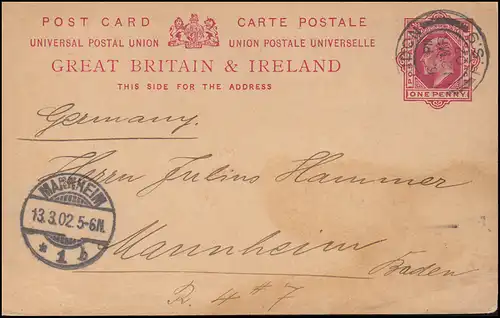 POST CARD CARTE POSTALE
UNIVERSAL POSTAL UNION UNION POSTALE UNIVERSELLE
GREAT BRITAIN & IRELAND
THIS SIDE FOR THE ADDRESS
ONE PENNY
Germany.
Herrn Julius Hammer
Mannheim
Baden
R. 4 # 7
MANNHEIM
13.3.02.5-6N.
* 1 b